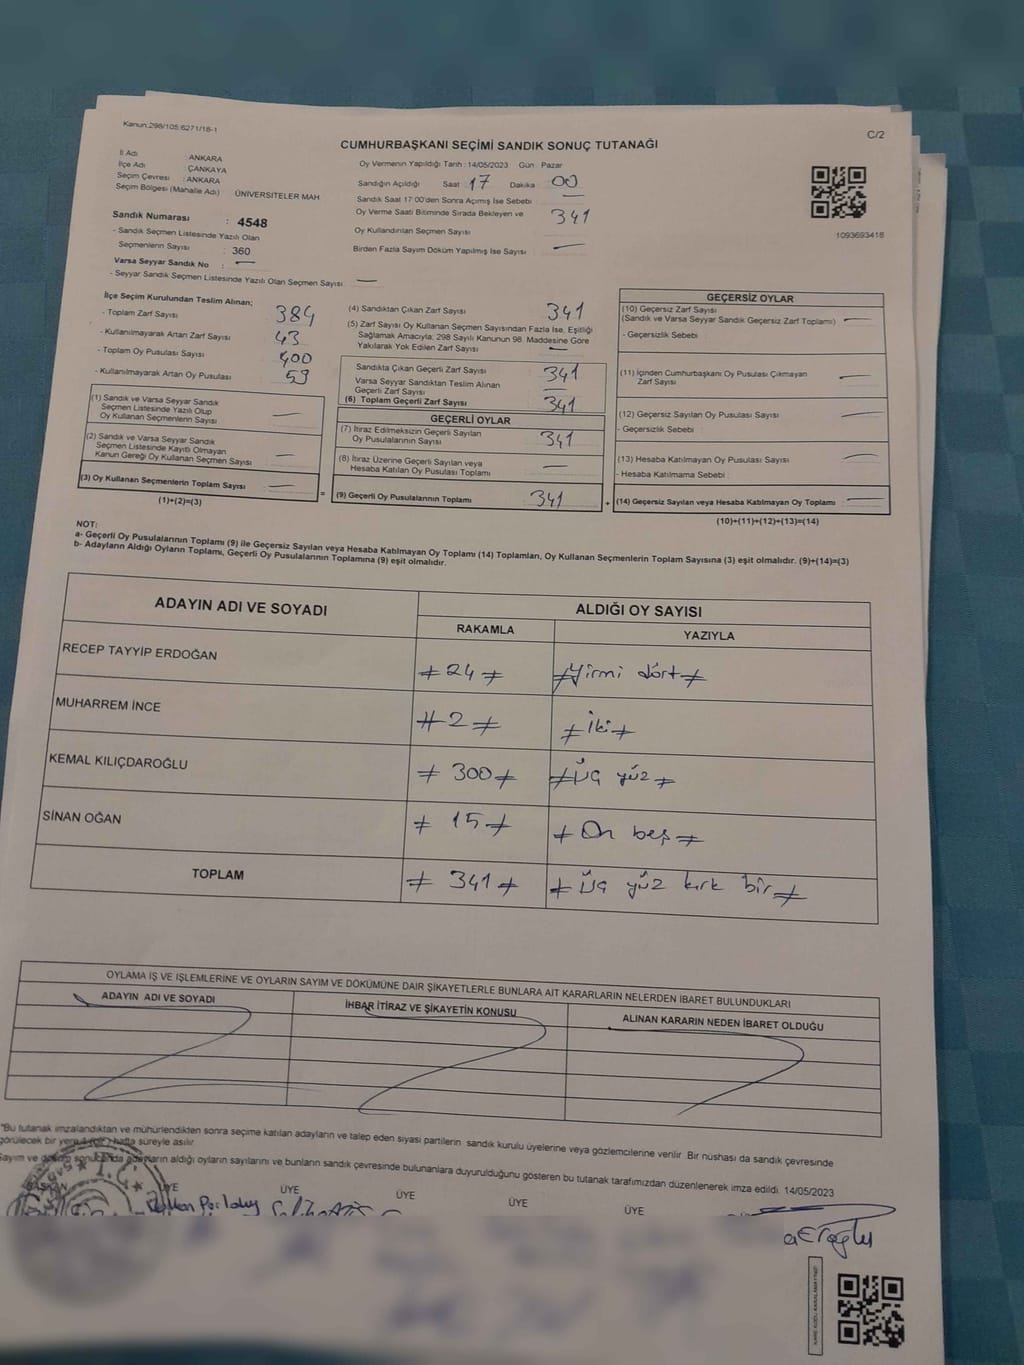 Kanun:298/105;6271/18-1
C/2
CUMHURBAŞKANI SEÇİMİ SANDIK SONUÇ TUTANAĞI
İl Adı : ANKARA
İlçe Adı : ÇANKAYA
Seçim Çevresi : ANKARA
Seçim Bölgesi (Mahalle Adı) ÜNİVERSİTELER MAH
Sandık Numarası : 4548
- Sandık Seçmen Listesinde Yazılı Olan
Seçmenlerin Sayısı : 360
Varsa Seyyar Sandık No : —
- Seyyar Sandık Seçmen Listesinde Yazılı Olan Seçmen Sayısı: —
Oy Vermenin Yapıldığı Tarih : 14/05/2023 Gün : Pazar
Sandığın Açıldığı Saat 17 Dakika 00
Sandık Saat 17 00'den Sonra Açımış İse Sebebi —
Oy Verme Saati Bitiminde Sırada Bekleyen ve 341
Oy Kullandırılan Seçmen Sayısı
Birden Fazla Sayım Döküm Yapılmış İse Sayısı —
1093693418
İlçe Seçim Kurulundan Teslim Alınan;
- Toplam Zarf Sayısı 384
- Kullanılmayarak Artan Zarf Sayısı 43
- Toplam Oy Pusulası Sayısı 400
- Kullanılmayarak Artan Oy Pusulası 59
(1) Sandık ve Varsa Seyyar Sandık
Seçmen Listesinde Yazılı Olup
Oy Kullanan Seçmenlerin Sayısı —
(2) Sandık ve Varsa Seyyar Sandık
Seçmen Listesinde Kayıtlı Olmayan
Kanun Gereği Oy Kullanan Seçmen Sayısı —
(3) Oy Kullanan Seçmenlerin Toplam Sayısı —
(1)+(2)=(3)
(4) Sandıktan Çıkan Zarf Sayısı 341
(5) Zarf Sayısı Oy Kullanan Seçmen Sayısından Fazla İse, Eşitliği
Sağlamak Amacıyla; 298 Sayılı Kanunun 98. Maddesine Göre
Yakılarak Yok Edilen Zarf Sayısı —
Sandıkta Çıkan Geçerli Zarf Sayısı 341
Varsa Seyyar Sandıktan Teslim Alınan
Geçerli Zarf Sayısı —
(6) Toplam Geçerli Zarf Sayısı 341
GEÇERLİ OYLAR
(7) İtiraz Edilmeksizin Geçerli Sayılan
Oy Pusulalarının Sayısı 341
(8) İtiraz Üzerine Geçerli Sayılan veya
Hesaba Katılan Oy Pusulası Toplamı —
= (9) Geçerli Oy Pusulalarının Toplamı 341 +
GEÇERSİZ OYLAR
(10) Geçersiz Zarf Sayısı
(Sandık ve Varsa Seyyar Sandık Geçersiz Zarf Toplamı) —
- Geçersizlik Sebebi :
(11) İçinden Cumhurbaşkanı Oy Pusulası Çıkmayan
Zarf Sayısı —
(12) Geçersiz Sayılan Oy Pusulası Sayısı —
- Geçersizlik Sebebi :
(13) Hesaba Katılmayan Oy Pusulası Sayısı —
- Hesaba Katılmama Sebebi :
(14) Geçersiz Sayılan veya Hesaba Katılmayan Oy Toplamı —
(10)+(11)+(12)+(13)=(14)
NOT:
a- Geçerli Oy Pusulalarının Toplamı (9) ile Geçersiz Sayılan veya Hesaba Katılmayan Oy Toplamı (14) Toplamları, Oy Kullanan Seçmenlerin Toplam Sayısına (3) eşit olmalıdır. (9)+(14)=(3)
b- Adayların Aldığı Oyların Toplamı, Geçerli Oy Pusulalarının Toplamına (9) eşit olmalıdır.
ADAYIN ADI VE SOYADI ALDIĞI OY SAYISI
RAKAMLA YAZIYLA
RECEP TAYYİP ERDOĞAN ≠ 24 ≠ ≠ Yirmi dört ≠
MUHARREM İNCE # 2 ≠ ≠ İki ≠
KEMAL KILIÇDAROĞLU ≠ 300 ≠ ≠ Üç yüz ≠
SİNAN OĞAN ≠ 15 ≠ ≠ On beş ≠
TOPLAM ≠ 341 ≠ ≠ Üç yüz kırk bir ≠
OYLAMA İŞ VE İŞLEMLERİNE VE OYLARIN SAYIM VE DÖKÜMÜNE DAİR ŞİKAYETLERLE BUNLARA AİT KARARLARIN NELERDEN İBARET BULUNDUKLARI
ADAYIN ADI VE SOYADI İHBAR İTİRAZ VE ŞİKAYETİN KONUSU ALINAN KARARIN NEDEN İBARET OLDUĞU
"Bu tutanak imzalandıktan ve mühürlendikten sonra seçime katılan adayların ve talep eden siyasi partilerin sandık kurulu üyelerine veya gözlemcilerine verilir. Bir nüshası da sandık çevresinde
görülecek bir yere hafta süreyle asılır.
Sayım ve döküm sonucunda adayların aldığı oyların sayılarını ve bunların sandık çevresinde bulunanlara duyurulduğunu gösteren bu tutanak tarafımızdan düzenlenerek imza edildi. 14/05/2023
BAŞKAN ÜYE ÜYE ÜYE ÜYE ÜYE
T.C.